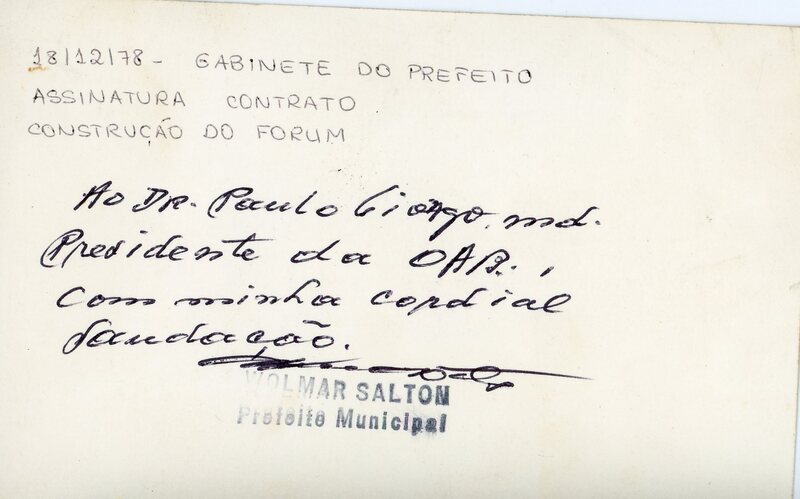 18/12/78 - GABINETE DO PREFEITO
ASSINATURA CONTRATO
CONSTRUÇÃO DO FORUM
Ao DR. Paulo Giongo, md.
Presidente da OAB.,
com minha cordial
saudação.
WOLMAR SALTON
Prefeito Municipal